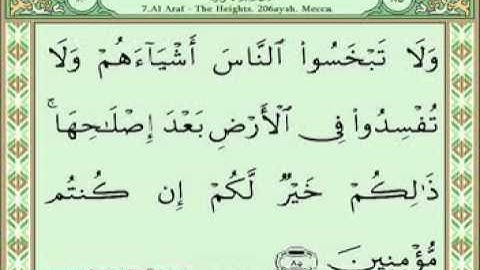 7.Al Araf - The Heights. 206ayah. Mecca
وَلَا تَبْخَسُوا۟ ٱلنَّاسَ أَشْيَآءَهُمْ وَلَا
تُفْسِدُوا۟ فِى ٱلْأَرْضِ بَعْدَ إِصْلَـٰحِهَا ۚ
ذَٰلِكُمْ خَيْرٌ لَّكُمْ إِن كُنتُم
مُّؤْمِنِينَ ٨٥